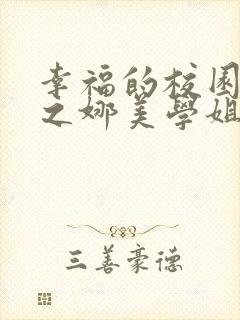 幸福的校園
之娜美學姐
三善豪德